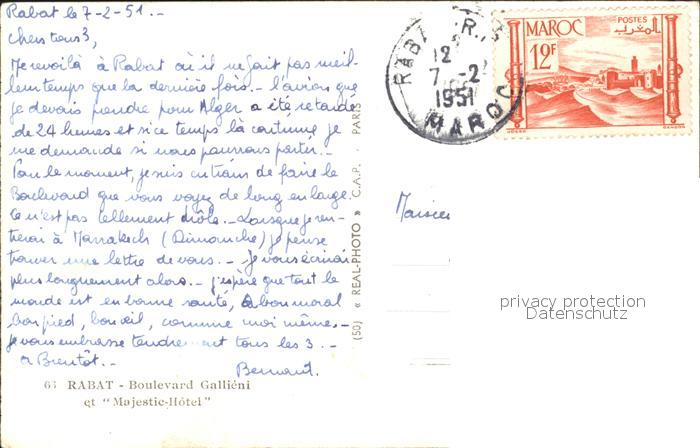 Rabat le 7-2-51.-
Chers tous 3,
Me revoilà à Rabat où il ne fait pas meil-
leur temps que la dernière fois.- L'avion que
je devais prendre pour Alger a été retardé
de 24 heures et si ce temps là continue je
me demande si nous pourrons partir.-
Pour le moment, je suis en train de faire le
Boulevard que vous voyez de long en large.
Ce n'est pas tellement drôle.- Lorsque je ren-
trerai à Marrakech (Dimanche) je pense
trouver une lettre de vous.- Je vous écrirai
plus longuement alors.- J'espère que tout le
monde est en bonne santé, a bon moral
bon pied, bon oeil, comme moi même.-
Je vous embrasse tendrement tous les 3.-
a Bientôt.-
Bernard.
63 RABAT - Boulevard Galliéni
et "Majestic-Hôtel"
(50) « REAL-PHOTO » C.A.P. PARIS
RABAT R.P.
12
7 -2
1951
MAROC
MAROC
POSTES
المغرب
12F
GANDON
privacy protection
Datenschutz